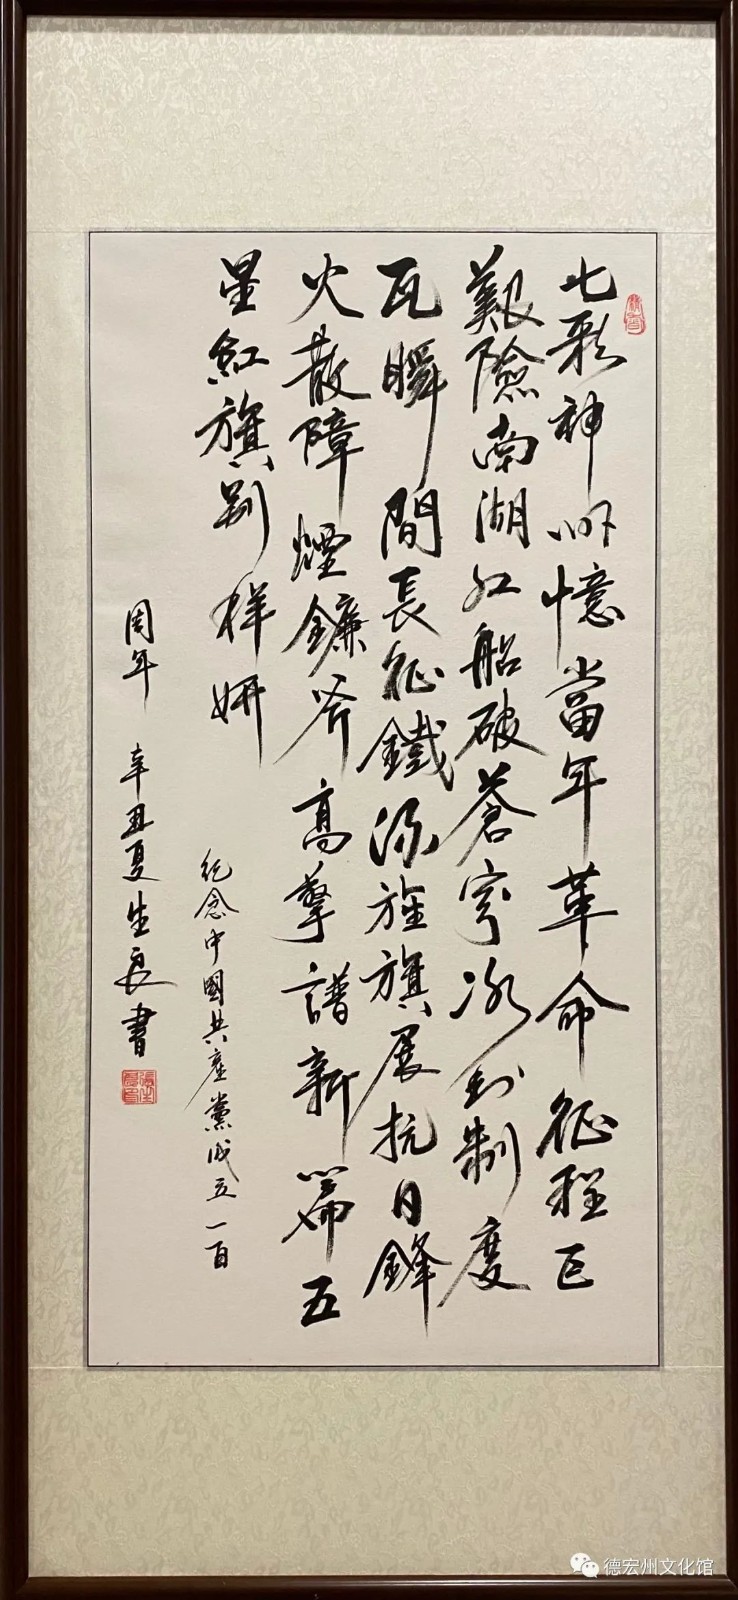 七彩神州憶當年革命征程
艱險南湖紅船破蒼穹冰封制度
瓦瞬間長征鐵流旌旗展抗日鋒
火散障煙鐮斧高擎譜新篇五
星紅旗别樣妍
紀念中國共產黨成立一百
周年 辛丑夏生良書
德宏州文化馆